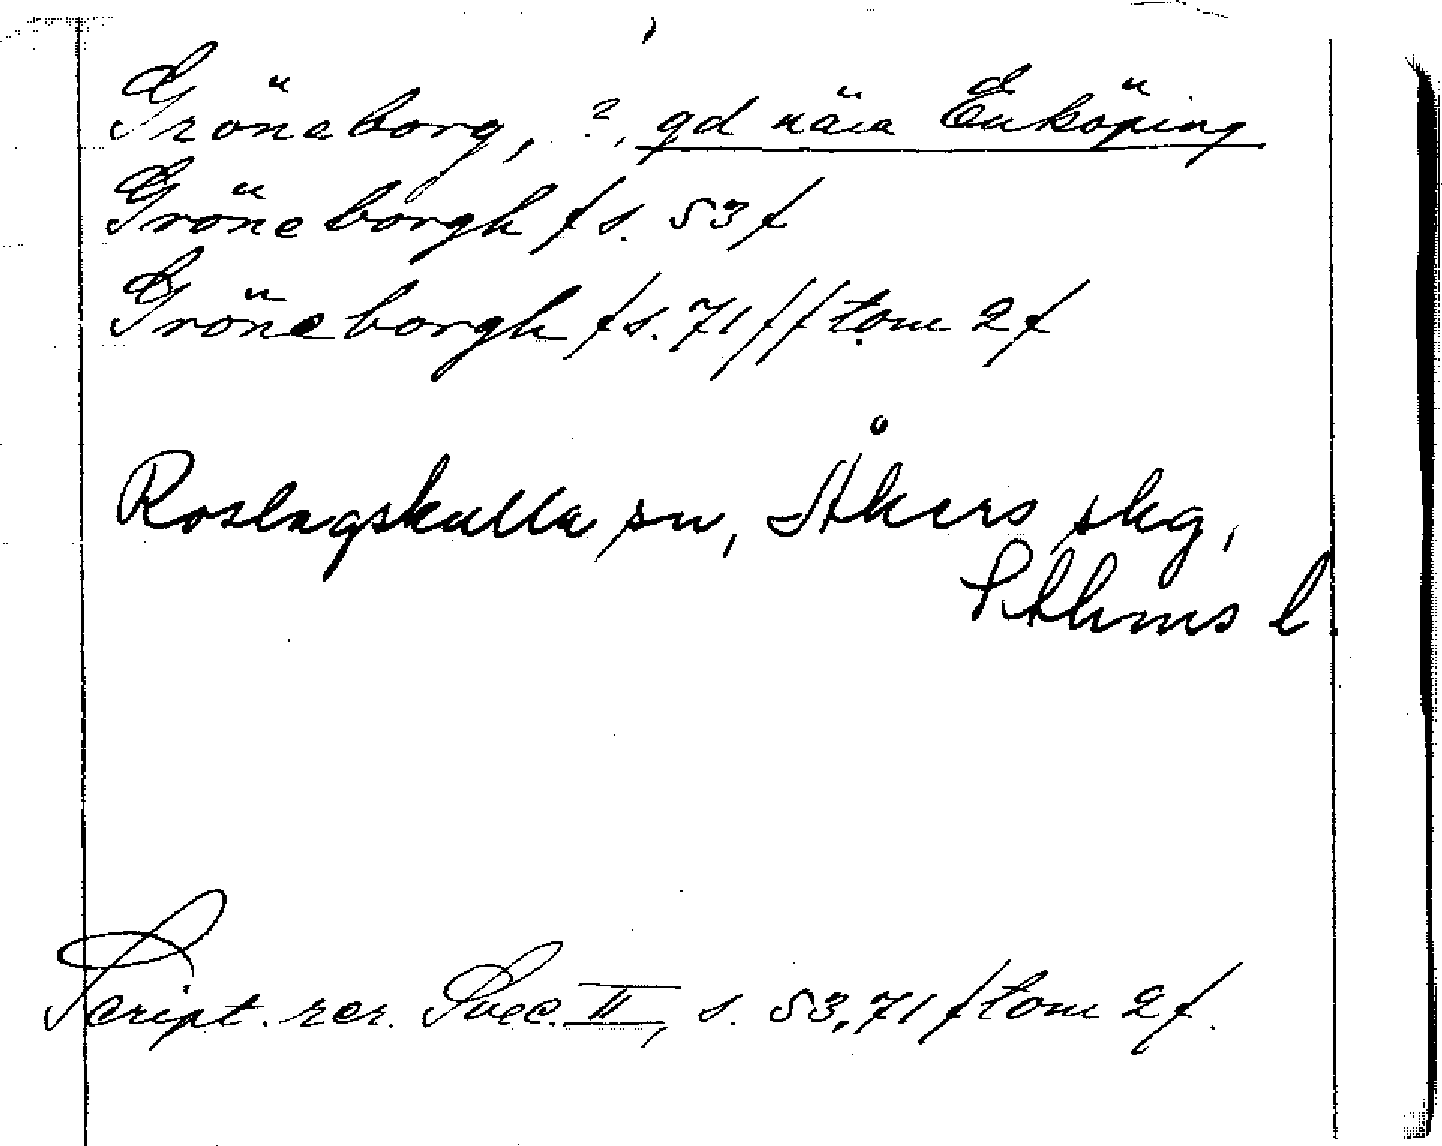 Gröneborg, ?, gd nära Enköping
Gröneborgh /s. 53/
Gröneborgh /s. 71/ /tom 2/
Roslagskulla sn, Åkers skg,
Sthlms l.
Script. rer. Svec. II, s. 53, 71 /tom 2/.